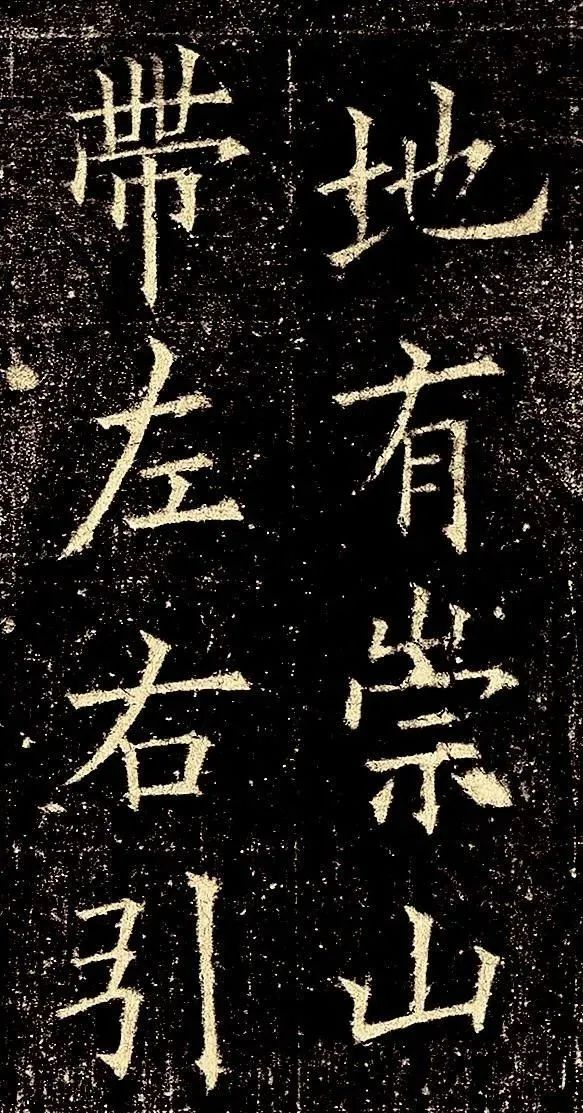 地有崇山
帶左右引